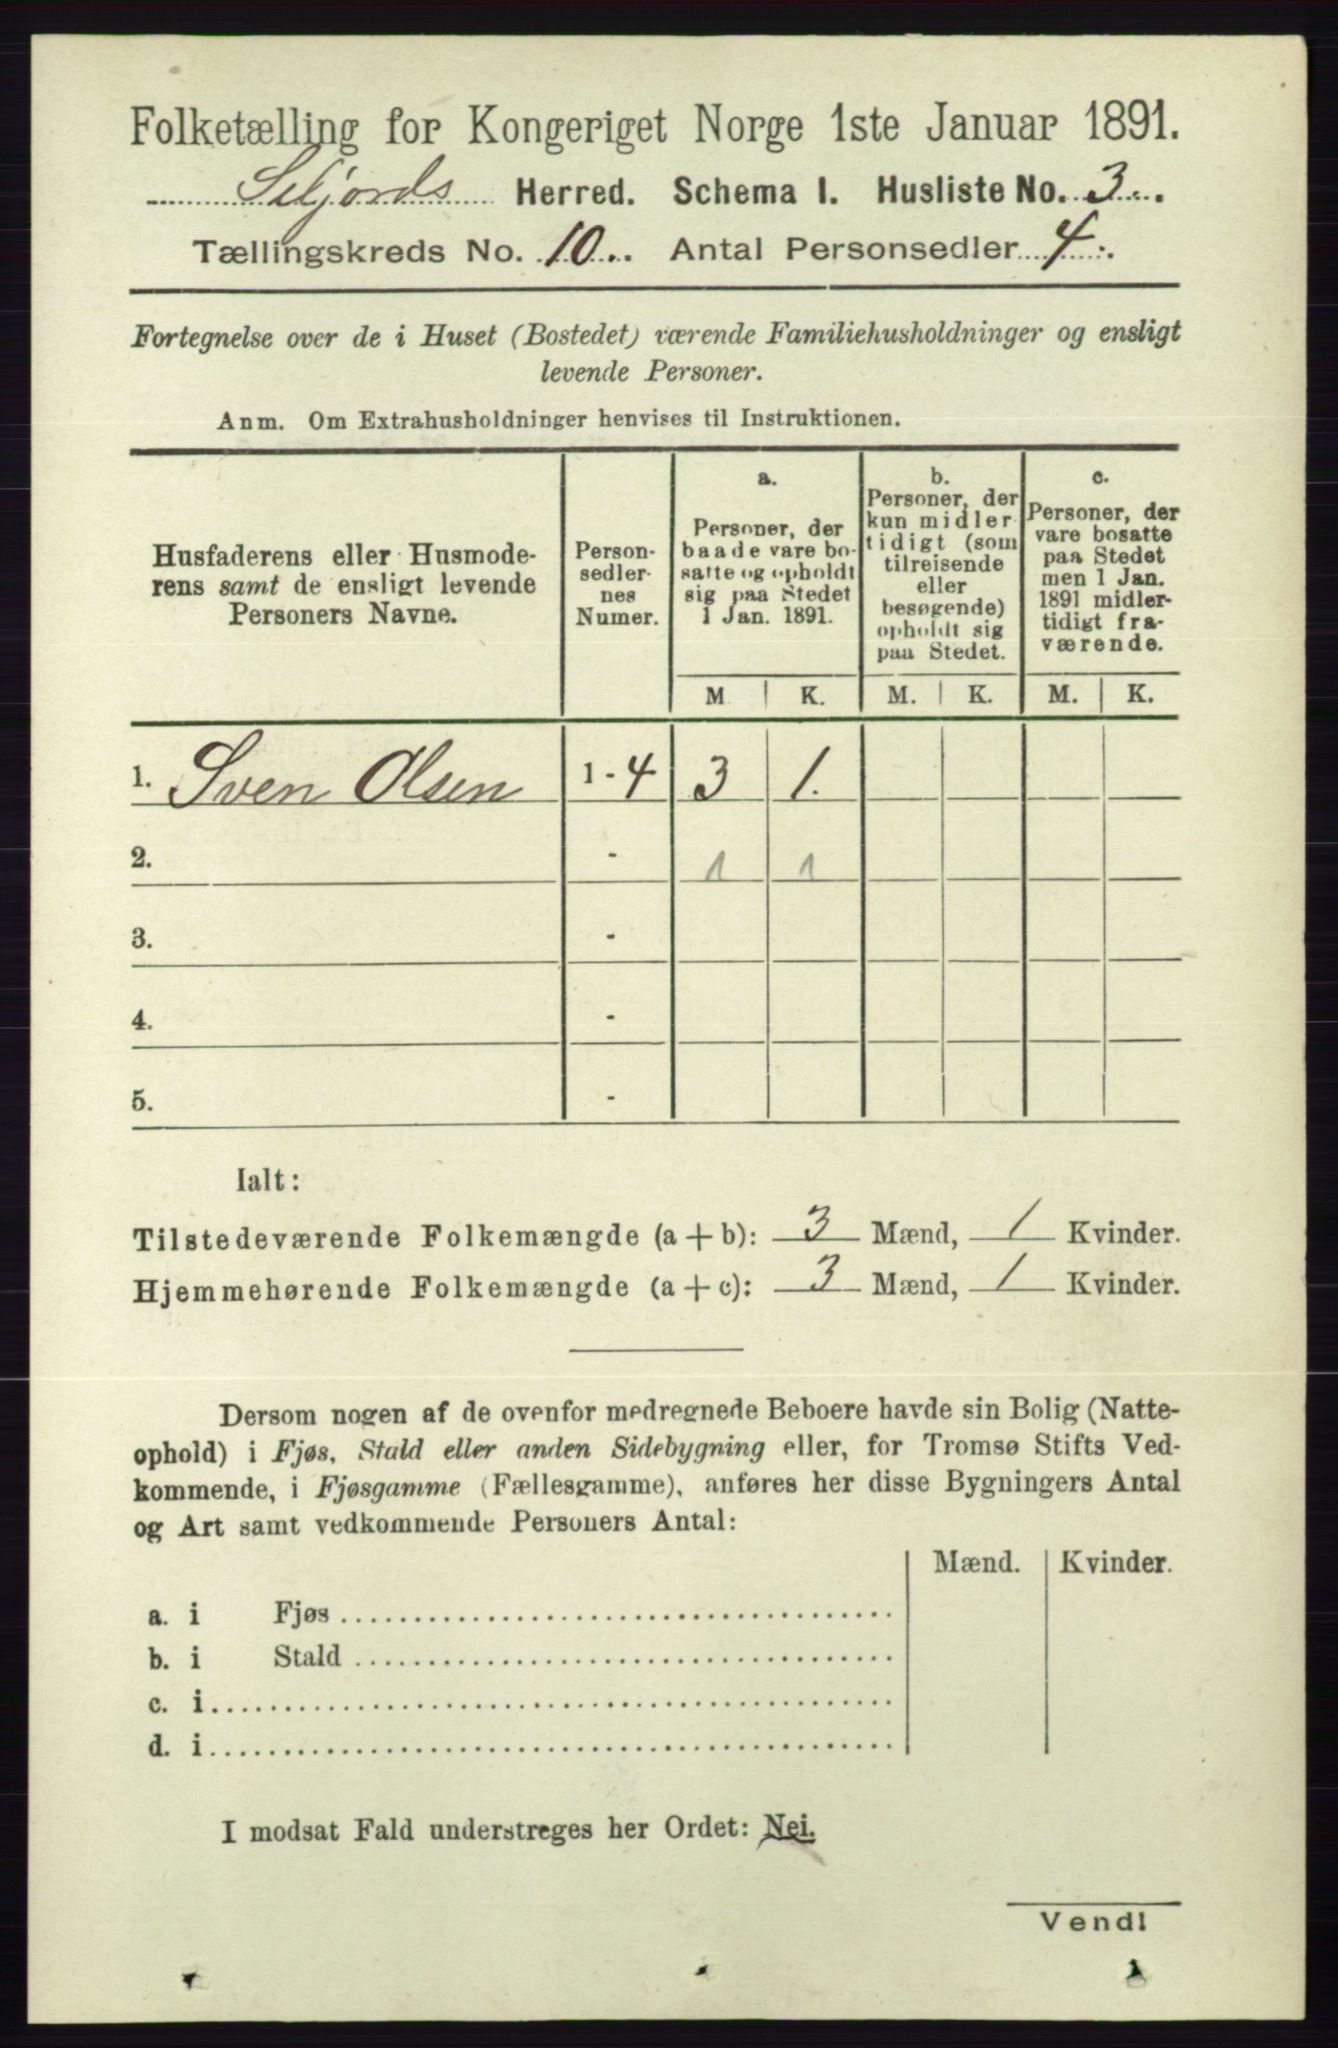 Folketælling for Kongeriget Norge 1ste Januar 1891.
Seljords Herred. Schema I. Husliste No. 3.
Tællingskreds No. 10. Antal Personsedler 4.
Fortegnelse over de i Huset (Bostedet) værende Familiehusholdninger og ensligt
levende Personer.
Anm. Om Extrahusholdninger henvises til Instruktionen.
Husfaderens eller Husmode-
rens samt de ensligt levende
Personers Navne.
Person-
sedler-
nes
Numer.
a.
Personer, der
baade vare bo-
satte og opholdt
sig paa Stedet
1 Jan. 1891.
b.
Personer, der
kun midler
tidigt (som
tilreisende
eller
besøgende)
opholdt sig
paa Stedet.
c.
Personer, der
vare bosatte
paa Stedet
men 1 Jan.
1891 midler-
tidigt fra-
værende.
M K. M. K. M. K.
1. Sven Olsen 1 - 4 3 1.
2. - 1 1
3. -
4. -
5. -
Ialt:
Tilstedeværende Folkemængde (a + b): 3 Mænd, 1 Kvinder.
Hjemmehørende Folkemængde (a + c): 3 Mænd, 1 Kvinder.
Dersom nogen af de ovenfor medregnede Beboere havde sin Bolig (Natte-
ophold) i Fjøs, Stald eller anden Sidebygning eller, for Tromsø Stifts Ved-
kommende, i Fjøsgamme (Fællesgamme), anføres her disse Bygningers Antal
og Art samt vedkommende Personers Antal:
Mænd. Kvinder.
a. i Fjøs
b. i Stald
c. i
d. i
I modsat Fald understreges her Ordet: Nei.
Vend!